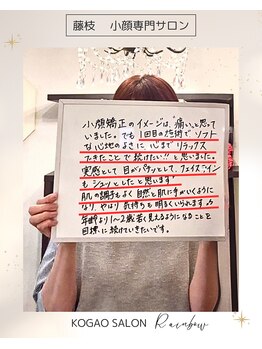 藤枝 小顔専門サロン
小顔矯正のイメージは、痛いと思って
いました。でも1回目の施術で ソフト
な心地のよさに 心まで リラックス
できたことで続けたい!!と思いました。
実感として 目がパチッとして、フェイスライン
も シュッとしたと思います
肌の調子もよく自然と肌に手がいくように
なり、やはり気持ちも明るくいられます
年齢より1〜2歳若く見えるようになることを
目標に続けていきたいです。
KOGAO SALON Rainbow